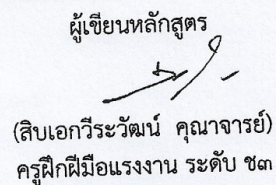 ผู้เขียนหลักสูตร
(สิบเอกวีระวัฒน์ คุณาจารย์)
ครูฝึกฝีมือแรงงาน ระดับ ช๓